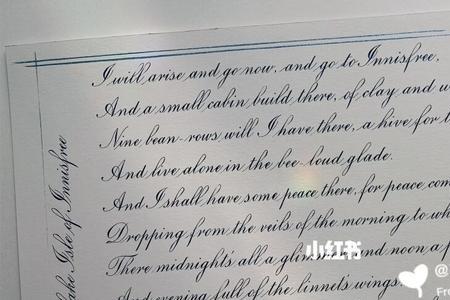 I will arise and go now, and go to Innisfree,
And a small cabin build there, of clay and
Nine bean-rows will I have there, a hive for
And live alone in the bee-loud glade.
And I shall have some peace there, for peace
Dropping from the veils of the morning to
There midnight's all a and noon a
And evening full of the linnet's wings.
Isle of Innisfree
小红书
@